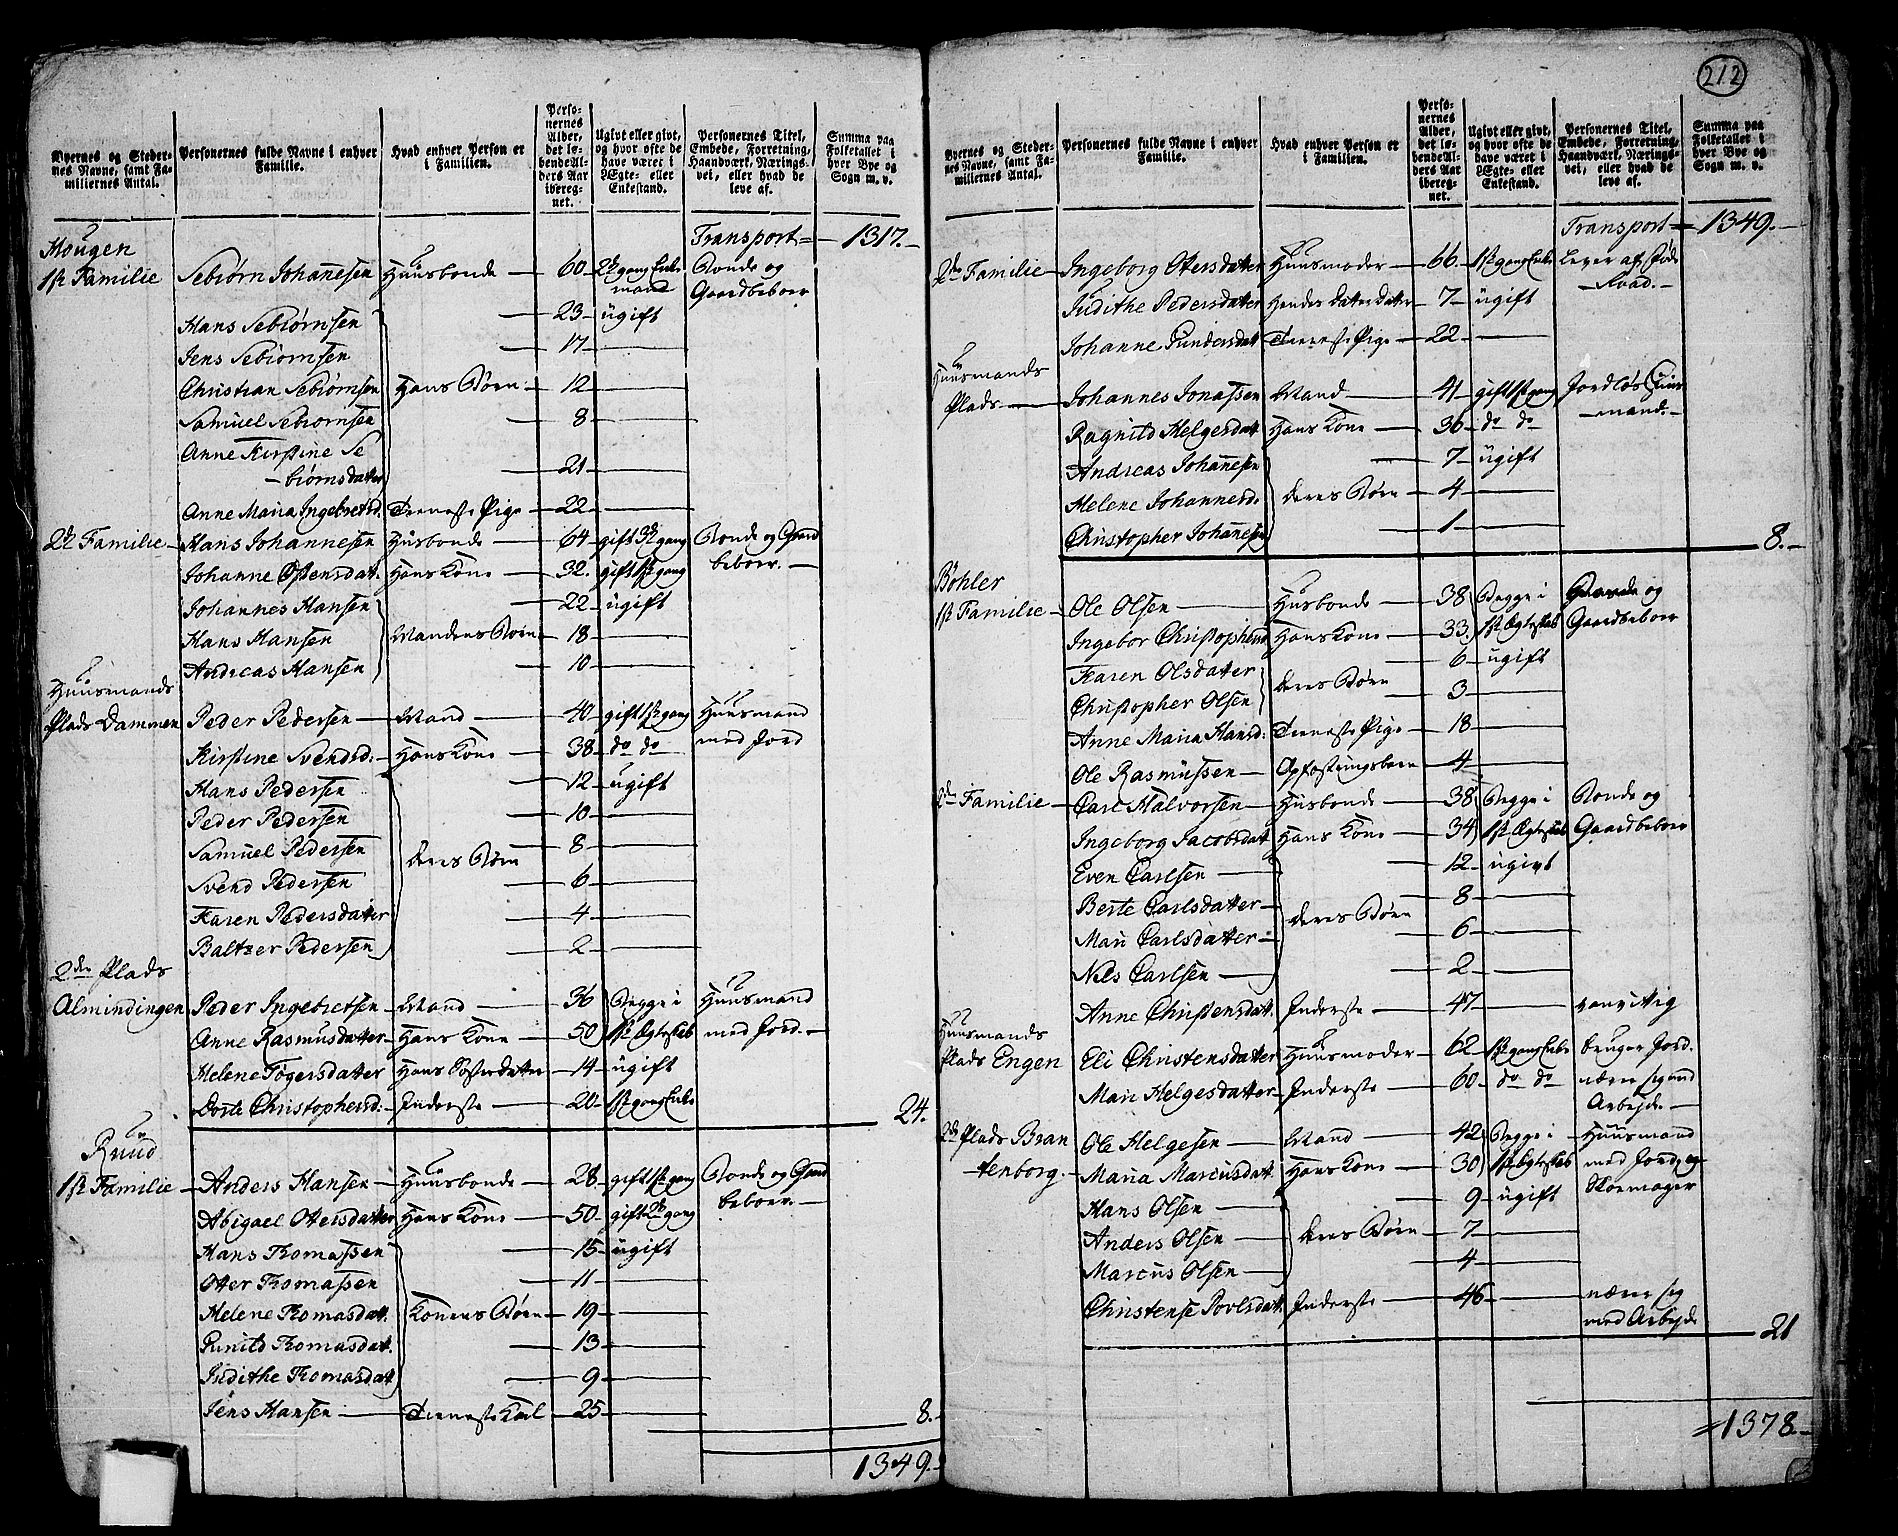 212
Byernes og Stedernes Navne, samt Familiernes Antal.
Personernes fulde Navne i enhver Familie.
Hvad enhver Person er i Familien.
Personernes Alder, det løbende Alders Aar iberegnet.
Ugivt eller givt, og hvor ofte de have været i Ægte- eller Enkestand.
Personernes Titel, Embede, Forretning, Haandværk, Næringsvei, eller hvad de leve af.
Summa paa Folketallet i hver Bye og Sogn m. v.
Transport = 1317.
Hougen
1ste Familie Sebiørn Johannesen Huusbonde 60 2de gang Enkemand Bonde og Gaardbeboer
Hans Sebiørnsen 23 ugift
Jens Sebiørnsen 17
Christian Sebiørnsen Hans Børn 12
Samuel Sebiørnsen 8
Anne Kirstine Sebiørnsdatter 21
Anne Maria Ingebretsd. Tieneste Pige 22
2de Familie Hans Johannesen Husbonde 64 gift 3de gang Bonde og Gaardbeboer.
Johanne Østensdat. Hans Kone 32. gift 1ste gang
Johannes Hansen 22 ugift
Hans Hansen Mandens Børn 18
Andreas Hansen 10
Huusmands
Plads Dammen Peder Pedersen Mand 40 gift 1ste gang Huusmand med Jord
Kirstine Svendsd. Hans Kone 38 do do
Hans Pedersen 12 ugift
Peder Pedersen 10
Samuel Pedersen deres Børn 8
Svend Pedersen 6
Karen Pedersdatter 4
Baltzer Pedersen 2
2den Plads
Almindingen Peder Ingebretsen Mand 36 Begge i Huusmand
Anne Rasmusdatter Hans Kone 50 1ste Egteskab med Jord.
Helene Togersdatter Hans Søsterdatter 14 ugift
Dorte Christophersd. Inderste 20 1ste gang Enke
24.
Ruud
1ste Familie Anders Hansen Huusbonde 28 gift 1ste gang Bonde og Gaardbeboer.
Abigael Ottersdatter Hans Kone 50 gift 2de gang
Hans Thomassen 15 ugift
Otter Thomassen 11
Helene Thomasdat. Konens Børn 19
Gunild Thomasdat. 13
Judithe Thomasdat. 9
Jens Hansen Tieneste Karl 25
8.
1349.
Byernes og Stedernes Navne, samt Familiernes Antal.
Personernes fulde Navne i enhver Familie.
Hvad enhver Person er i Familien.
Personernes Alder, det løbende Alders Aar iberegnet.
Ugivt eller givt, og hvor ofte de have været i Ægte- eller Enkestand.
Personernes Titel, Embede, Forretning, Haandværk, Næringsvei, eller hvad de leve af.
Summa paa Folketallet i hver Bye og Sogn m. v.
Transport = 1349.
2den Familie Ingeborg Otersdatter Huusmoder 66 1ste gang Enke Lever af Føderaad.
Judithe Pedersdatter Hendes Datter Datter 7 ugift
Johanne Gundersdat. Tieneste Pige 22
Huusmands
Plads Johannes Jonassen Mand 41 gift 1ste gang Jordløs Huusmand.
Ragnild Helgesdatt Hans Kone 36 do do
Andreas Johannesen 7 ugift
Helene Johannesd. deres Børn 4
Christopher Johannesen 1
8.
Bøhler
1ste Familie Ole Olsen Husbonde 38 Begge i Bonde og
Ingebor Christophersd Hans Kone 33 1ste Egteskab Gaardbeboer
Karen Olsdatter 6 ugift
Christopher Olsen deres Børn 3
Anne Maria Hansd. Tieneste Pige 18
Ole Rasmussen Opfostringsbarn 4
2den Familie Carl Halvorsen Husbonde 38 Begge i Bonde og
Ingeborg Jacobsdat Hans Kone 34 1ste Egteskab Gaardbeboer
Even Carlsen 12 ugivt
Berte Carlsdatter 8
Mari Carlsdatter deres Børn 6
Nels Carlsen 2
Anne Christensdat. Inderste 47 vanvittig
Huusmands
Plads Engen Eli Christensdatter Huusmoder 62 1ste gang Enke bruger Jord.
Mari Helgesdatter Inderste 60 do do nærer sig ved Arbejde
2de Plads Brantenborg. Ole Helgesen Mand 42 Begge i Huusmand
Maria Marcusdat. Hans Kone 30 1ste Egteskab med Jord, og
Hans Olsen 9 ugift Skoemager
Anders Olsen deres Børn 7
Marcus Olsen 4
Christense Povlsdat. Inderste 46 nærer sig med Arbejde
21
1378.